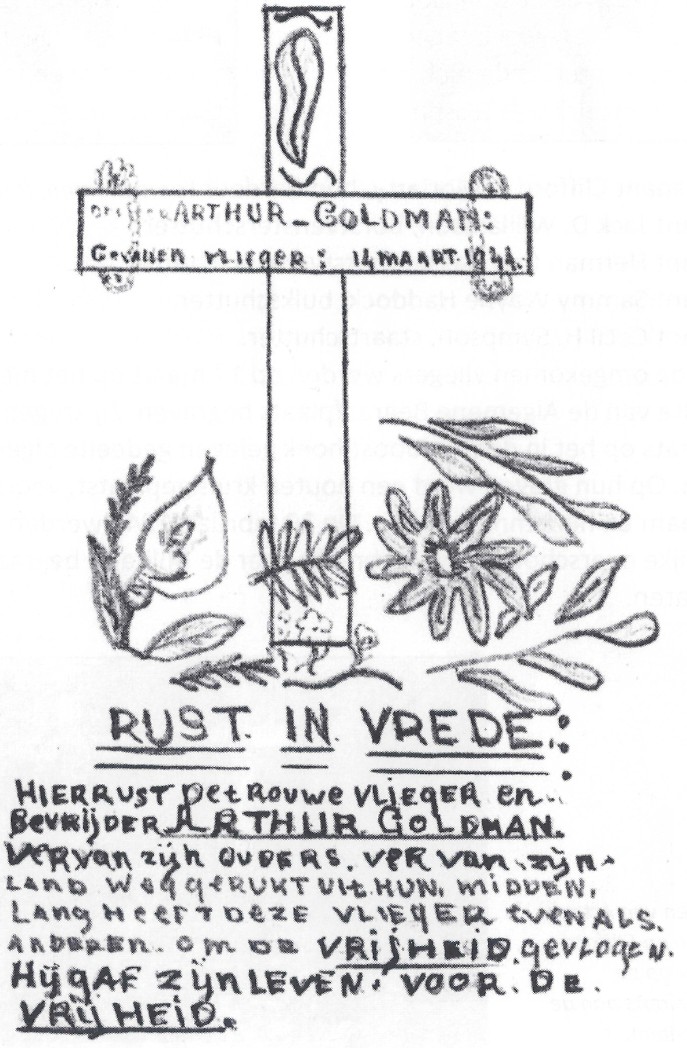 ARTHUR-GOLDMAN:
Gevallen vlieger: 14 MAART.1944.
RUST IN VREDE:
HIERRUST DetROUWE VLIEGER en
BeVRijDER ARTHUR GOLDMAN.
VERVan zijn OUDERS. VER Van zijn
LAND WeggeRUKT Uit HUN. MIDDEN.
LANG HEEFT DEZE VLIEGER EVENALS.
ANDEREN. OM DE VRIJHEID.gevlogen.
Hij gAF ZijNLEVEN. VOOR. DE.
VRIJHEID.